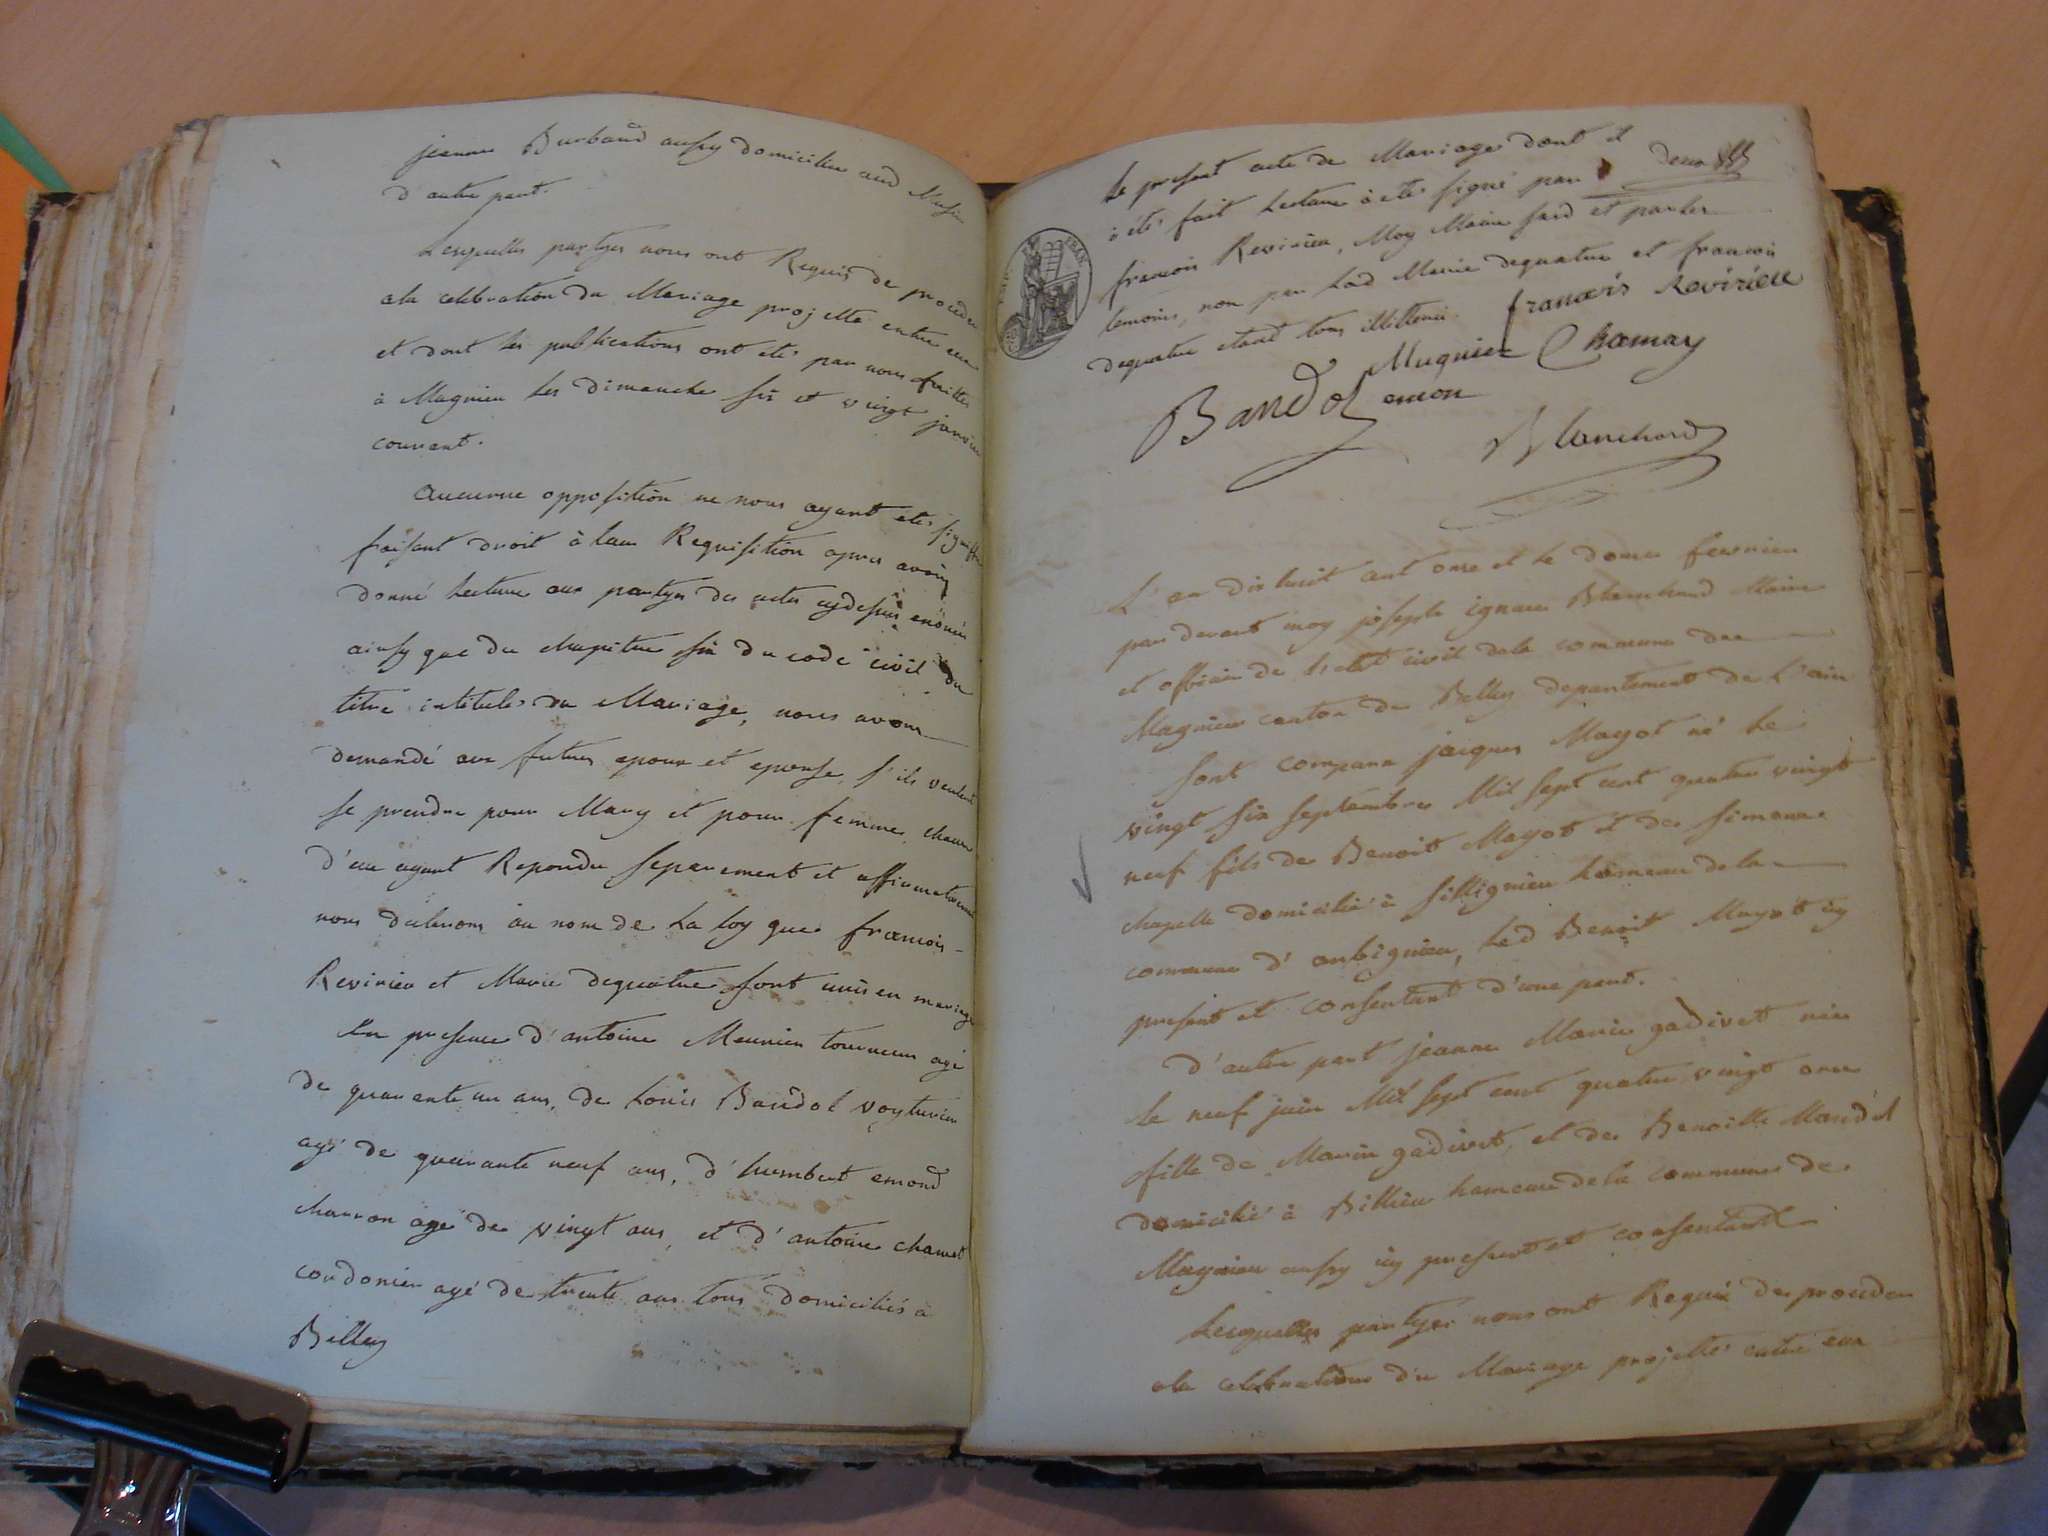 jeanne Burbaud aussy domiciliee aud
d'autre part.
Lesquelles partyes nous ont Requis de proceder
a la celebration du Mariage projetté entre eux
et dont les publications ont etés par nous faittes
à Magnieu les dimanche six et vingt janvier
courant.
Aucunne opposition ne nous ayant etés signiffié
faisant droit à leur Requisition apres avoir
donné lecture aux partyes des actes cy dessus enoncés
ainsy que du chapitre six du code civil du
titre intitulés du Mariage, nous avons
demandé aux futurs epoux et epouse, s'ils veulent
se prendre pour Mary et pour femme, chacun
d'eux ayant Repondu separement et affirmativement
nous declarons au nom de La loy que francois
Revirieu et Marie dequatre sont unis en mariage
En presence d'antoine Meunier tourneur agé
de quarante un ans, de Louis Baudol voyturier
agé de quarante neuf ans, d'humbert emond
charron agé de vingt ans, et d'antoine chamet
cordonier agé de trente ans tous domiciliés à
Belley
Le present acte de Mariage dont il
à étés fait Lecture à etés signé par
francois Revirieu, Moy Maire susd et par les
temoins, non par Lad Marie dequatre et francois
dequatre etant tous illitterés. francois Revirieu
Mugnier Chamay
Baudol emon
Blanchard
L'an dix huit cent onze et le douze fevrier
par devant moy joseph ignace Blanchard Maire
et officier de l'etat civil de la commune de
Magnieu canton de Belley departement de L'ain
sont comparu jacques Mayot né le
vingt six septembre Mil sept cent quatre vingt
neuf fils de Benoit Mayot et de simone
chapelle domicilié à sillignieu hameau de la
commune d'arbignieu, Led Benoit Mayot icy
present et consentant d'une part.
D'autre part jeanne Marie gadivet née
le neuf juin Mil sept cent quatre vingt onze
fille de Marin gadivet, et de Benoitte Mandet
domicilié à Billieu hameau de la commune de
Magnieu aussy icy present et consentant
Lesquelles partyes nous ont Requis de proceder
a la celebration du Mariage projetté entre eux